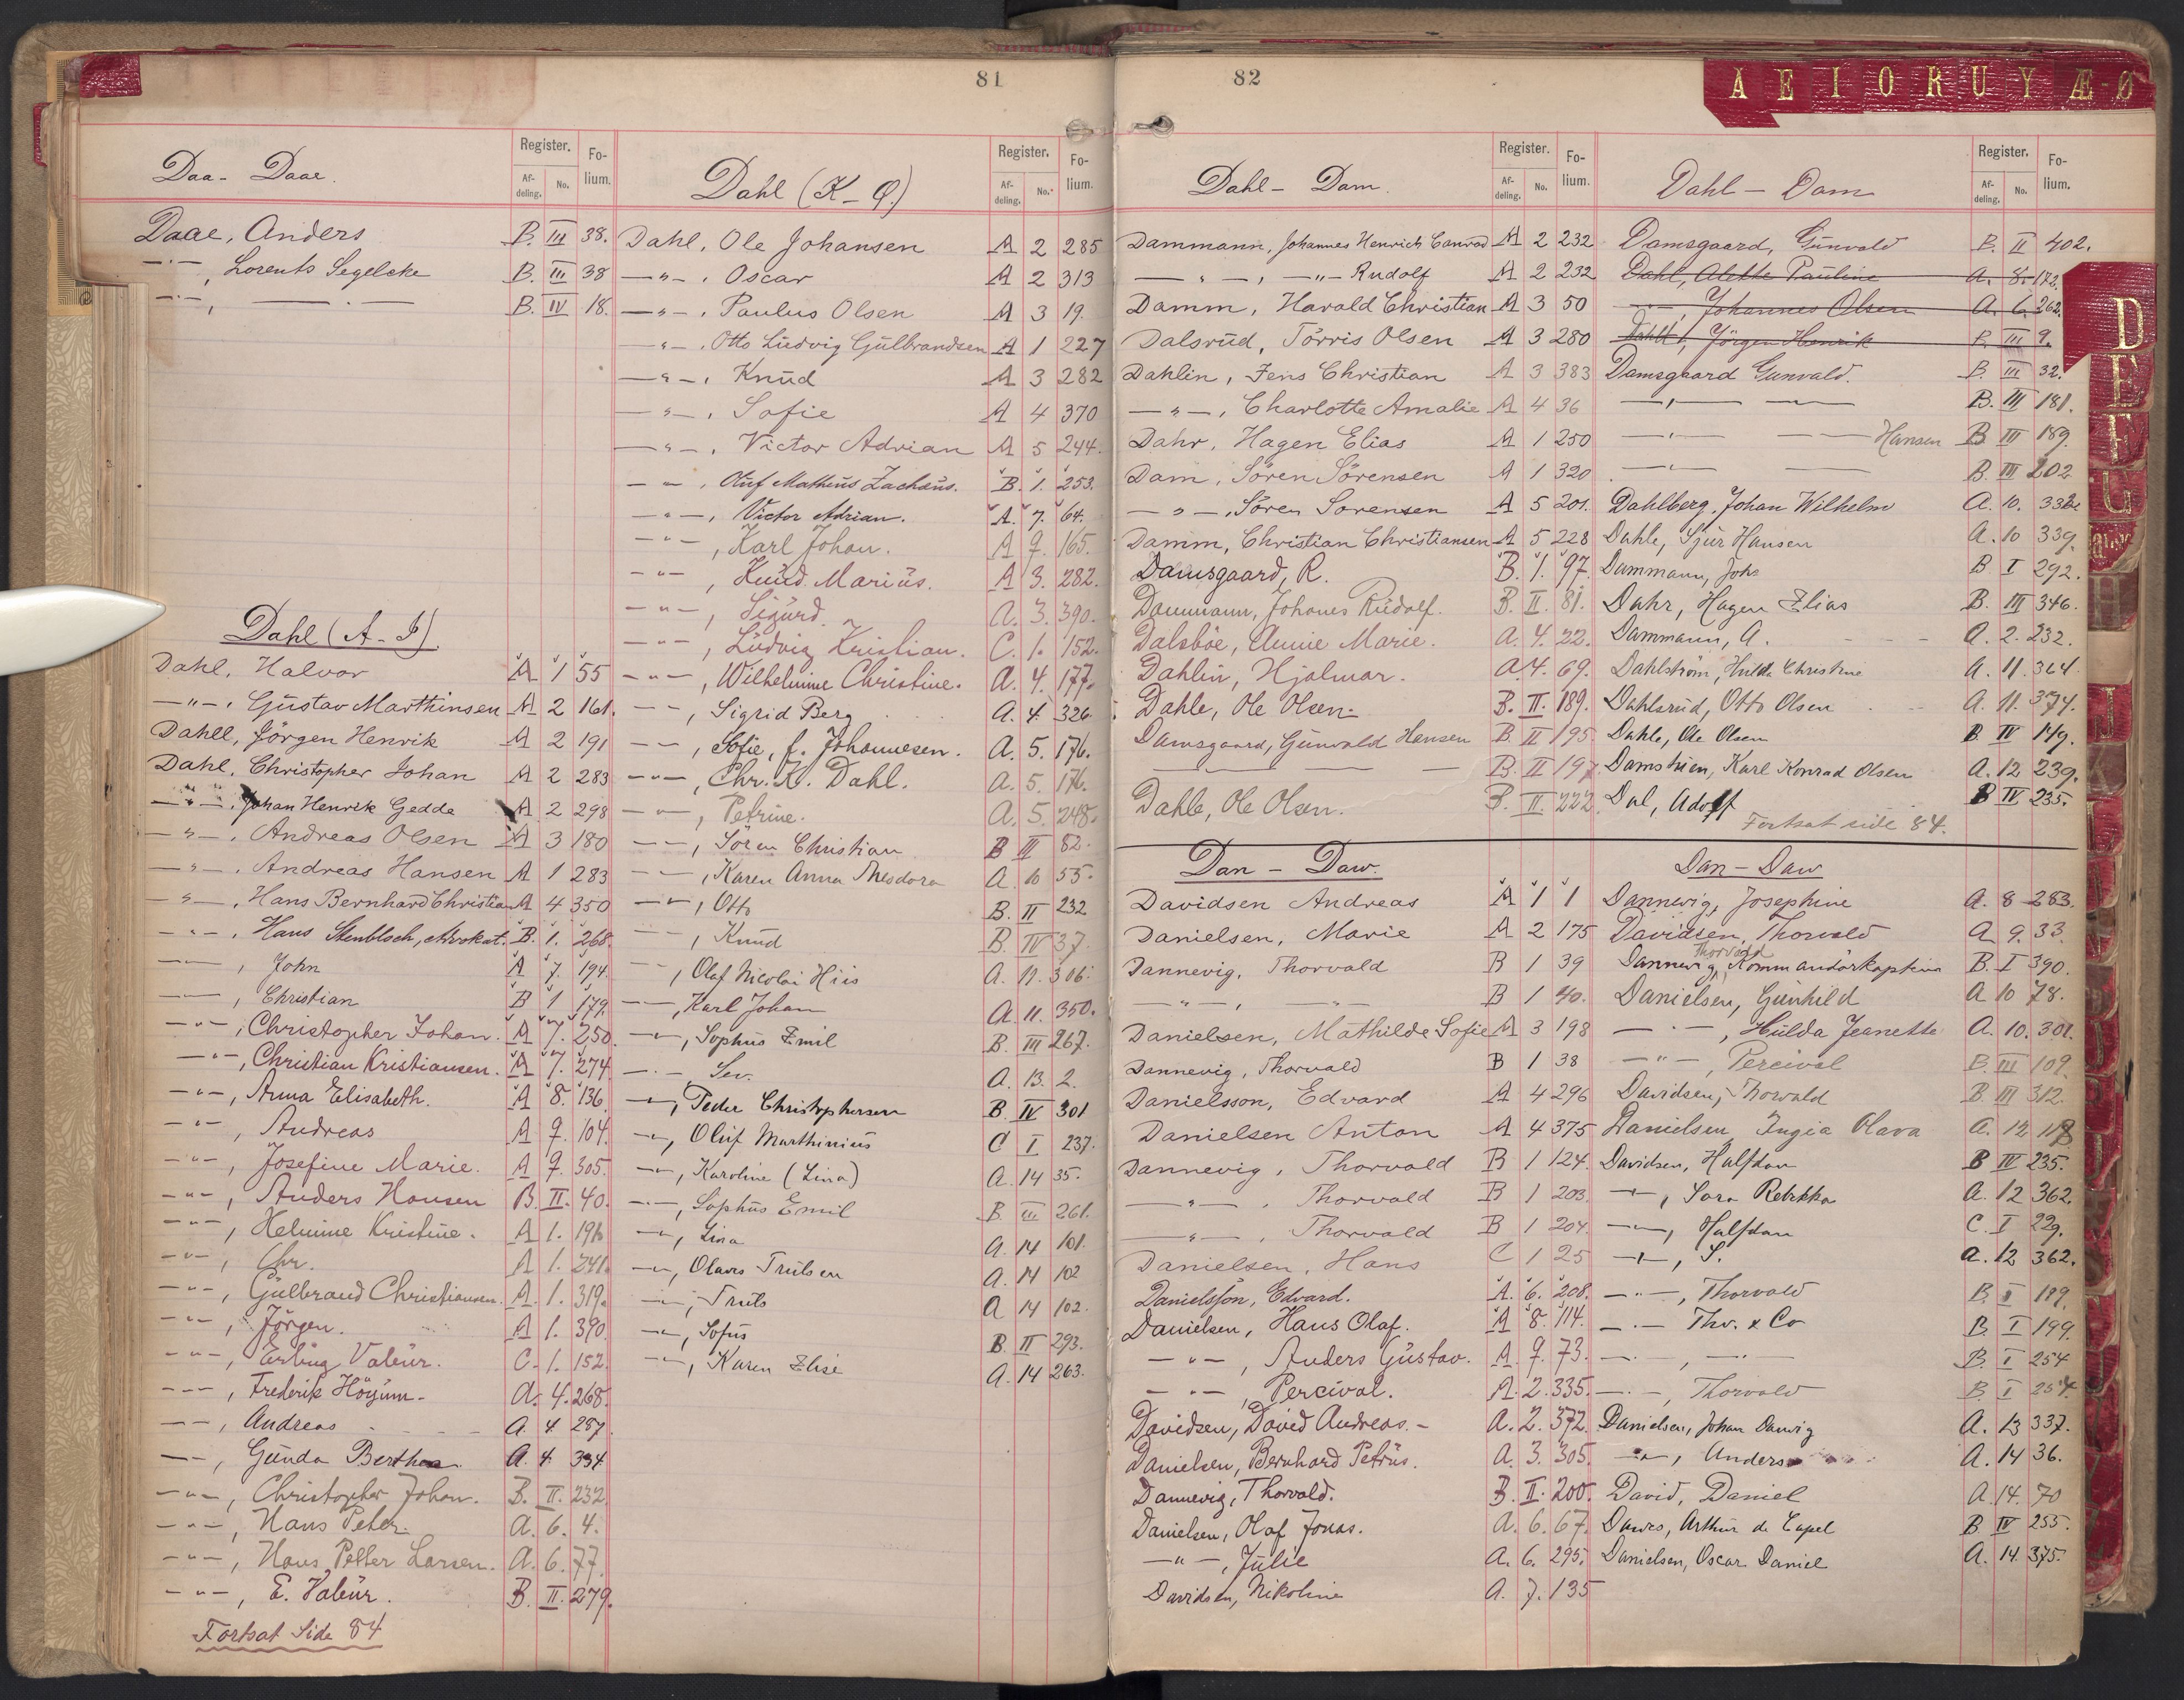 81
Daa - Daae.
Register. Folium.
Afdeling. No.
Daae, Anders B. III 38.
—"—, Lorents Segelcke B. III 38
—"—, — " — B. IV 18.
Dahl (A-J)
Dahl, Halvor A 1 55
—"—, Gustav Marthinsen A 2 161.
Dahll, Jörgen Henrik A 2 191
Dahl, Christopher Johan A 2 283
—"—, Johan Henrik Gedde A 2 298
—"—, Andreas Olsen A 3 180
—"—, Andreas Hansen A 1 283
—"—, Hans Bernhard Christian A 4 350
—"—, Hans Stenbloch, Advokat. B. 1. 268.
—"—, John A 7. 194.
—"—, Christian B 1 179.
—"—, Christopher Johan. A 7. 250.
—"—, Christian Kristiansen. A 7. 274.
—"—, Anna Elisabeth. A 8. 136
—"—, Andreas A 9. 104.
—"—, Josefine Marie. A 9. 305.
—"—, Anders Hansen B. II. 40.
—"—, Helmine Kristine. A 1. 196
—"—, Chr. A 1. 241.
—"—, Gulbrand Christiansen. A. 1. 319.
—"—, Jörgen. A 1. 390.
—"—, Erling Valeur. C. 1. 152.
—"—, Frederik Höyum. A. 4. 268.
—"—, Andreas A. 4. 287.
—"—, Gunda Berthea. A. 4. 334
—"—, Christopher Johan. B. II. 232.
—"—, Hans Peter. A. 6. 4.
—"—, Hans Petter Larsen. A. 6. 77.
—"—, E. Valeur. B. II. 279.
Fortsat Side 84
Dahl (K-Q.)
Register. Folium.
Afdeling. No.
Dahl, Ole Johansen A 2 285
—"—, Oscar A 2 313
—"—, Paulus Olsen A 3 19.
—"—, Otto Ludvig Gulbrandsen A 1 227
—"—, Knud A 3 282
—"—, Sofie A 4 370
—"—, Victor Adrian A 5 244.
—"—, Oluf Matheus Zachæus. B. 1. 253.
—"—, Victor Adrian. A. 7. 64.
—"—, Karl Johan. A 9. 165.
—"—, Knud Marius. A 3. 282.
—"—, Sigurd. A. 3. 390.
—"—, Ludvig Kristian. C. 1. 152.
—"—, Wilhelmine Christine. A. 4. 177.
—"—, Sigrid Berg A. 4. 326.
—"—, Sofie, f. Johannesen. A. 5. 176.
—"—, Chr. K. Dahl. A. 5. 176.
—"—, Petrine. A. 5. 248.
—"—, Sören Christian B II 82.
—"—, Karen Anna Theodora A. 10 55.
—"—, Otto B. II 232
—"—, Knud B. IV 37.
—"—, Olaf Nicolai Hiis A. 11. 306.
—"—, Karl Johan A. 11. 350.
—"—, Sophus Emil B. III 267.
—"— Sev. A. 13. 2.
—"—, Peder Christophersen B. IV 301
—"—, Oluf Marthinius C I 237.
—"—, Karoline (Lina) A. 14 35.
—"—, Sophus Emil B. III 261.
—"—, Lina A. 14 101.
—"—, Olaves Trulsen A. 14 102
—"—, Truls A 14 102.
—"—, Sofus B. II 293.
—"—, Karen Elise A. 14 263.
82
A E I O R U Y Æ-Ø
Dahl - Dam.
Register. Folium.
Afdeling. No.
Dammann, Johannes Henrich Conrad A 2 232
—"—, —"— Rudolf A 2 232
Damm, Harald Christian A 3 50
Dalsrud, Törris Olsen A 3 280
Dahlin, Jens Christian A 3 383
—"—, Charlotte Amalie A 4 36
Dahr, Hagen Elias A 1 250
Dam, Sören Sörensen A 1 320
—"—, Sören Sørensen A 5 201.
Damm, Christian Christiansen A 5 228
Damsgaard, R. B. 1. 97.
Dammann, Johanes Rudolf. B. II. 81.
Dalsböe, Annie Marie. A. 4. 22.
Dahlin, Hjalmar. A. 4. 69.
Dahle, Ole Olsen. B. II. 189.
Damsgaard, Gunvald Hansen B. II 195
— — — B. II 197
Dahle, Ole Olsen. B. II. 222.
Dan - Daw.
Davidsen Andreas A 1 1
Danielsen, Marie A 2 175
Dannevig, Thorvald B 1 39
—"—, —"— B 1 40.
Danielsen, Mathilde Sofie A 3 198
Dannevig, Thorvald B 1 38
Danielsson, Edvard A 4 296
Danielsen Anton A 4 375
Dannevig, Thorvald B 1 124.
—"—, Thorvald B 1 203.
—"—, Thorvald B 1 204.
Danielsen, Hans C 1 25
Danielsson, Edvard. A. 6. 208.
Danielsen, Hans Olaf. A 8. 114.
—"—, Anders Gustav. A. 9. 73.
—"—, Percival. A. 2. 335.
Davidsen, David Andreas. A. 2. 372.
Danielsen, Bernhard Petrus. A. 3. 305.
Dannevig, Thorvald. B. II. 200.
Danielsen, Olaf Jonas. A. 6. 67.
—"—, Julie A. 6. 295.
Davidsen, Nikoline A. 7. 135
Dahl - Dam
Register. Folium.
Afdeling. No.
Damsgaard, Gunvald B. II 402.
Dahl, Alette Pauline A. 8. 172.
—"—, Johannes Olsen A. 6. 262.
Dahll, Jörgen Henrik B. III 9.
Damsgaard Gunvald. B. III 32.
—"— — B. III 181.
—"— — Hansen B III 189.
—"— — B. III 202
Dahlberg, Johan Wilhelm A. 10. 332
Dahle, Sjur Hansen A. 10 339.
Dammann, Johs B I 292.
Dahr, Hagen Elias B. III 346.
Dammann, A. A. 2. 232.
Dahlström, Hulda Christine A. 11. 364
Dahlsrud, Otto Olsen A. 11. 374.
Dahle, Ole Olsen B. IV 149.
Damstuen, Karl Konrad Olsen A. 12 239.
Dal, Adolf B IV 235.
Fortsat side 84.
Dan - Daw
Dannevig, Josephine A. 8 283.
Davidsen, Thorvald A. 9. 33.
Dannevig, Thorvald Kommandörkaptein B. I 390.
Danielsen, Gunhild A 10 78.
—"—, Hulda Jeanette A. 10. 301.
—"—, Percival B. III 109.
Davidsen, Thorvald B. III 312.
Danielsen, Ingia Olava A. 12 118
Davidsen, Halfdan B IV 235.
—"—, Sara Rebekka A. 12 362.
—"—, Halfdan C. I 229.
—"—, S. A. 12 362.
—"—, Thorvald B. I 199.
—"— Thv. & Co B. I 199.
—"—, —"— B. I 254
—"—, Thorvald B. I 254
Danielsen, Johan Danvig A. 13 337.
—"—, Anders A. 14 36.
David, Daniel A. 14. 70
Dawes, Arthur de Capel B IV 255.
Danielsen, Oscar Daniel A. 14. 375.
D
E
F
G
J